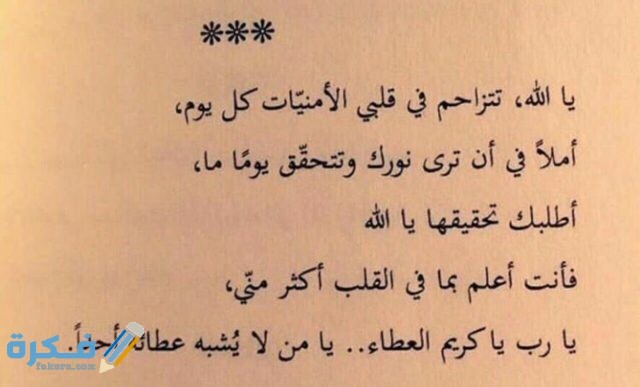 ***
يا الله، تتزاحم في قلبي الأمنيّات كل يوم،
أملاً في أن ترى نورك وتتحقّق يومًا ما،
أطلبك تحقيقها يا الله
فأنت أعلم بما في القلب أكثر منّي،
يا رب يا كريم العطاء.. يا من لا يُشبه عطائه أحداً.
فكرة
fekera.com